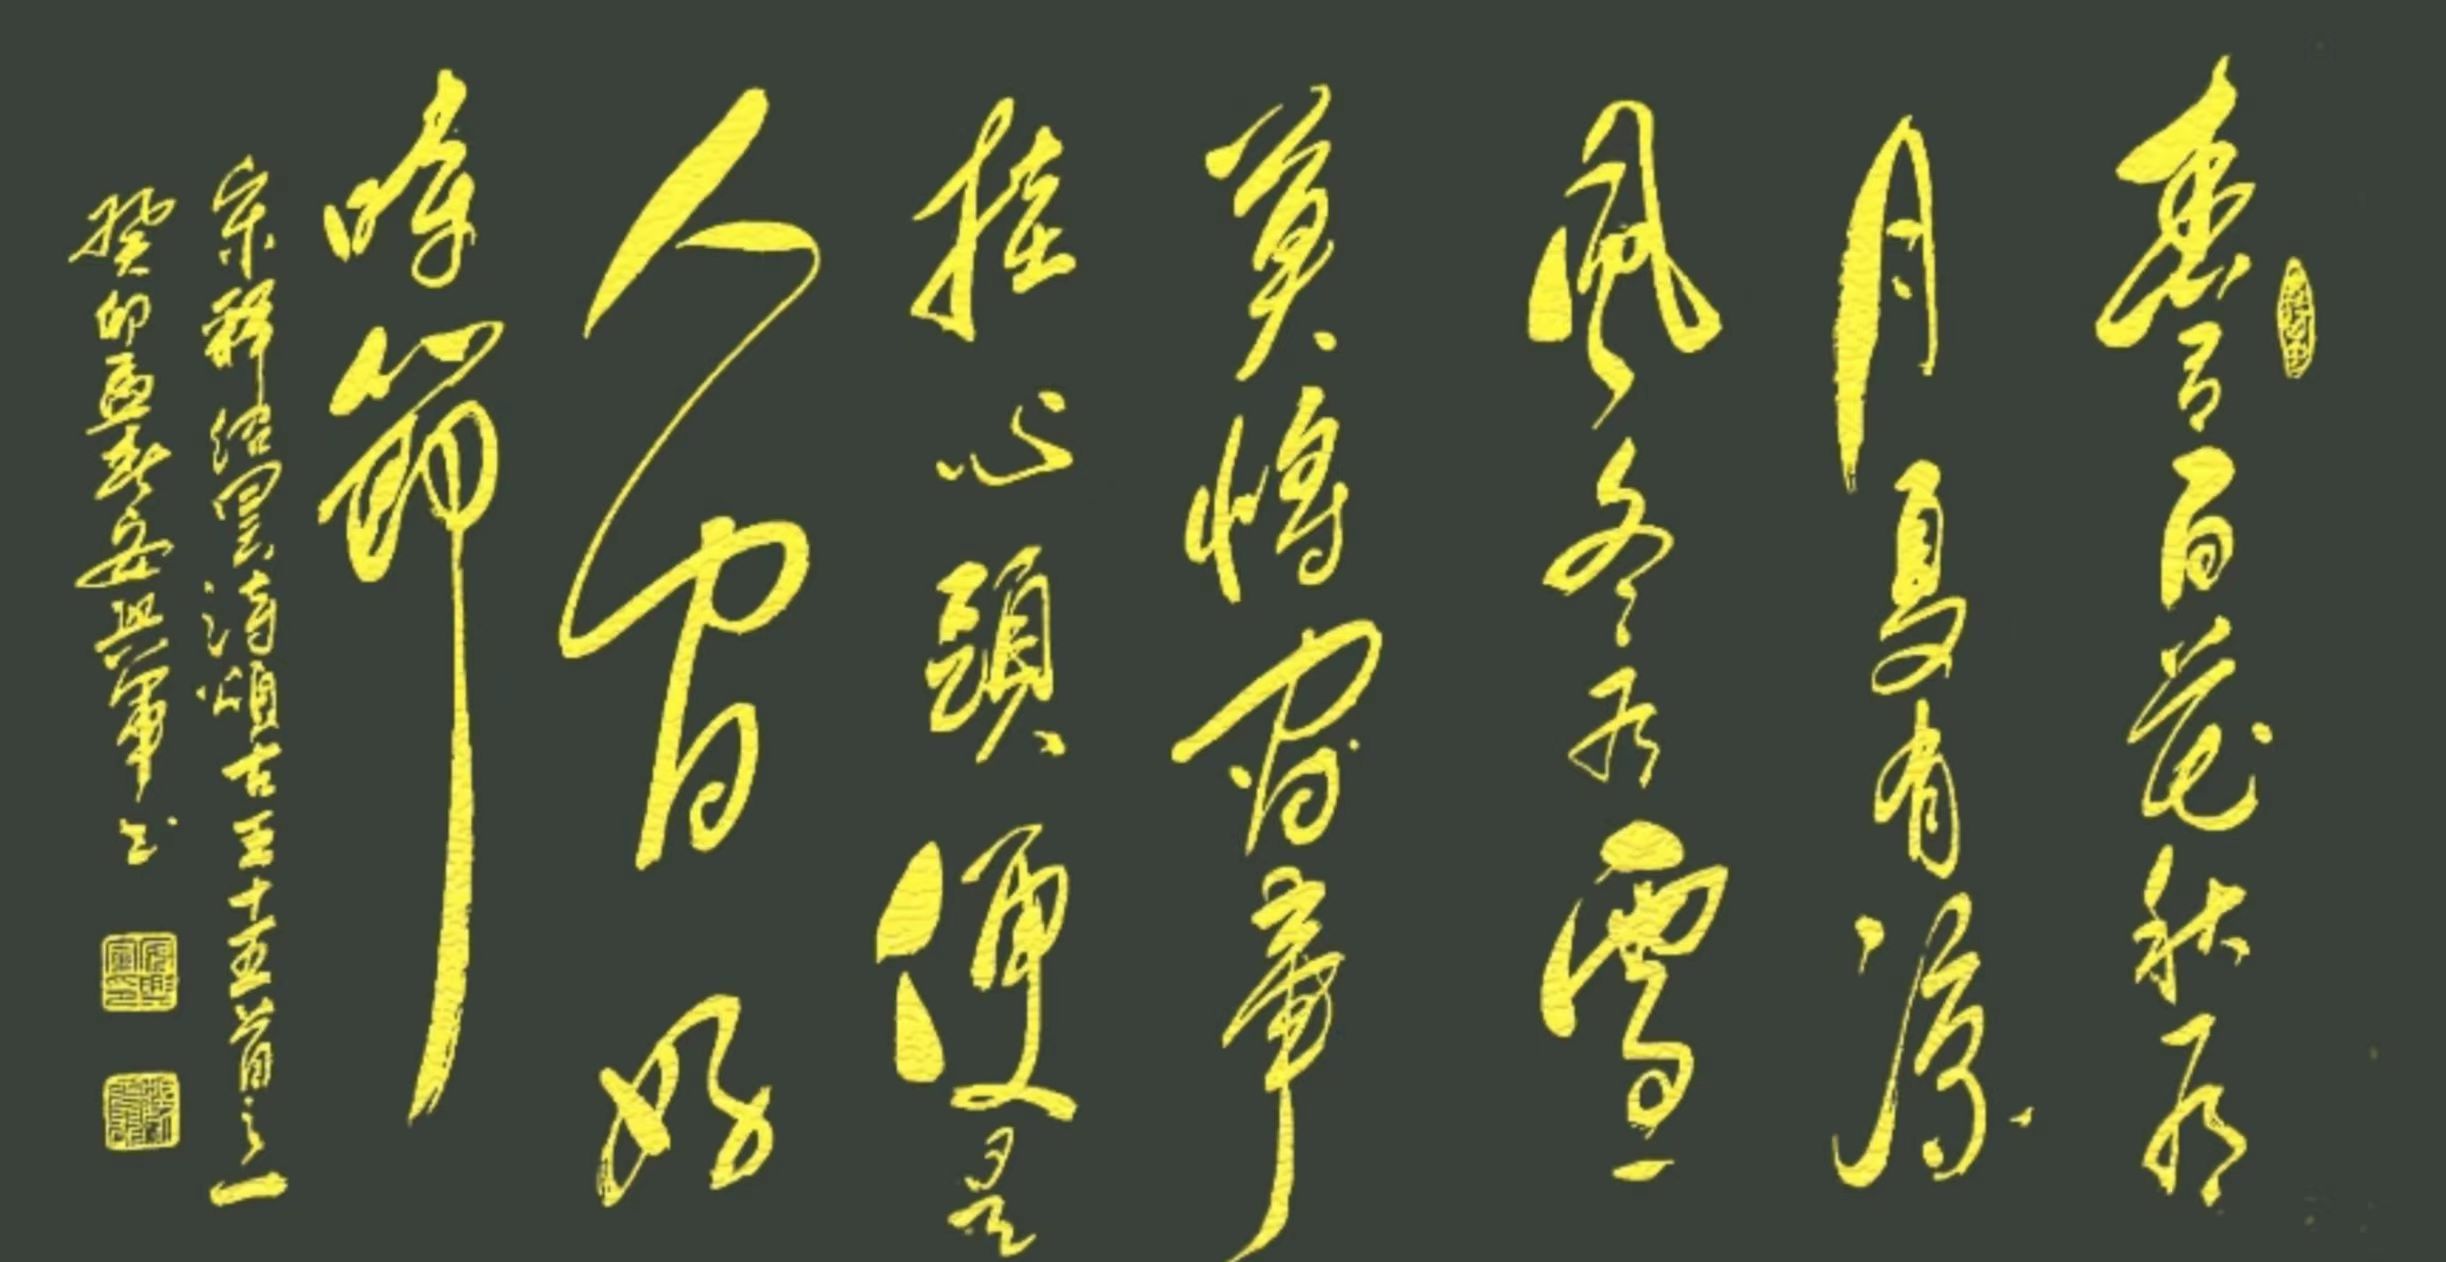 春有百花秋有
月夏有涼
風冬有雪
莫將閒事
挂心頭便是
人間好
時節
宋釋紹曇詩頌古五十五首之一
癸卯孟春安興軍书